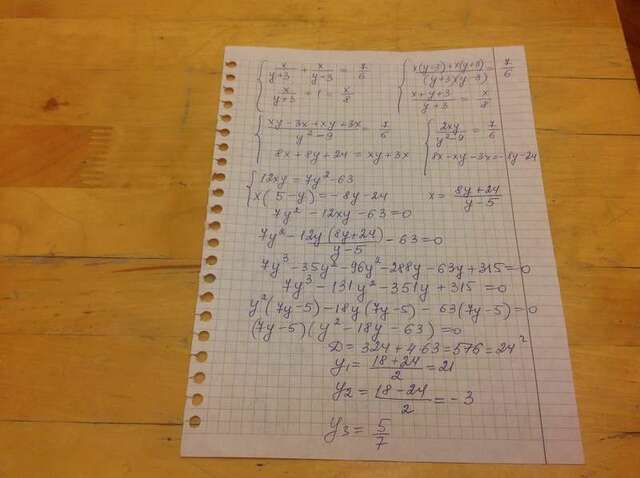 x/(y+3) + x/(y-3) = 7/6    (x(y-3)+x(y+3))/((y+3)(y-3)) = 7/6
x/(y+3) + 1 = x/8    (x+y+3)/(y+3) = x/8
(xy-3x+xy+3x)/(y²-9) = 7/6    2xy/(y²-9) = 7/6
8x+8y+24 = xy+3x    8x-xy-3x=-8y-24
12xy = 7y²-63
x(5-y) = -8y-24    x = (8y+24)/(y-5)
7y² - 12xy - 63 = 0
7y² - 12y(8y+24)/(y-5) - 63 = 0
7y³ - 35y² - 96y² - 288y - 63y + 315 = 0
7y³ - 131y² - 351y + 315 = 0
y²(7y-5) - 18y(7y-5) - 63(7y-5) = 0
(7y-5)(y² - 18y - 63) = 0
D = 324 + 4·63 = 576 = 24²
y₁ = (18+24)/2 = 21
y₂ = (18-24)/2 = -3
y₃ = 5/7